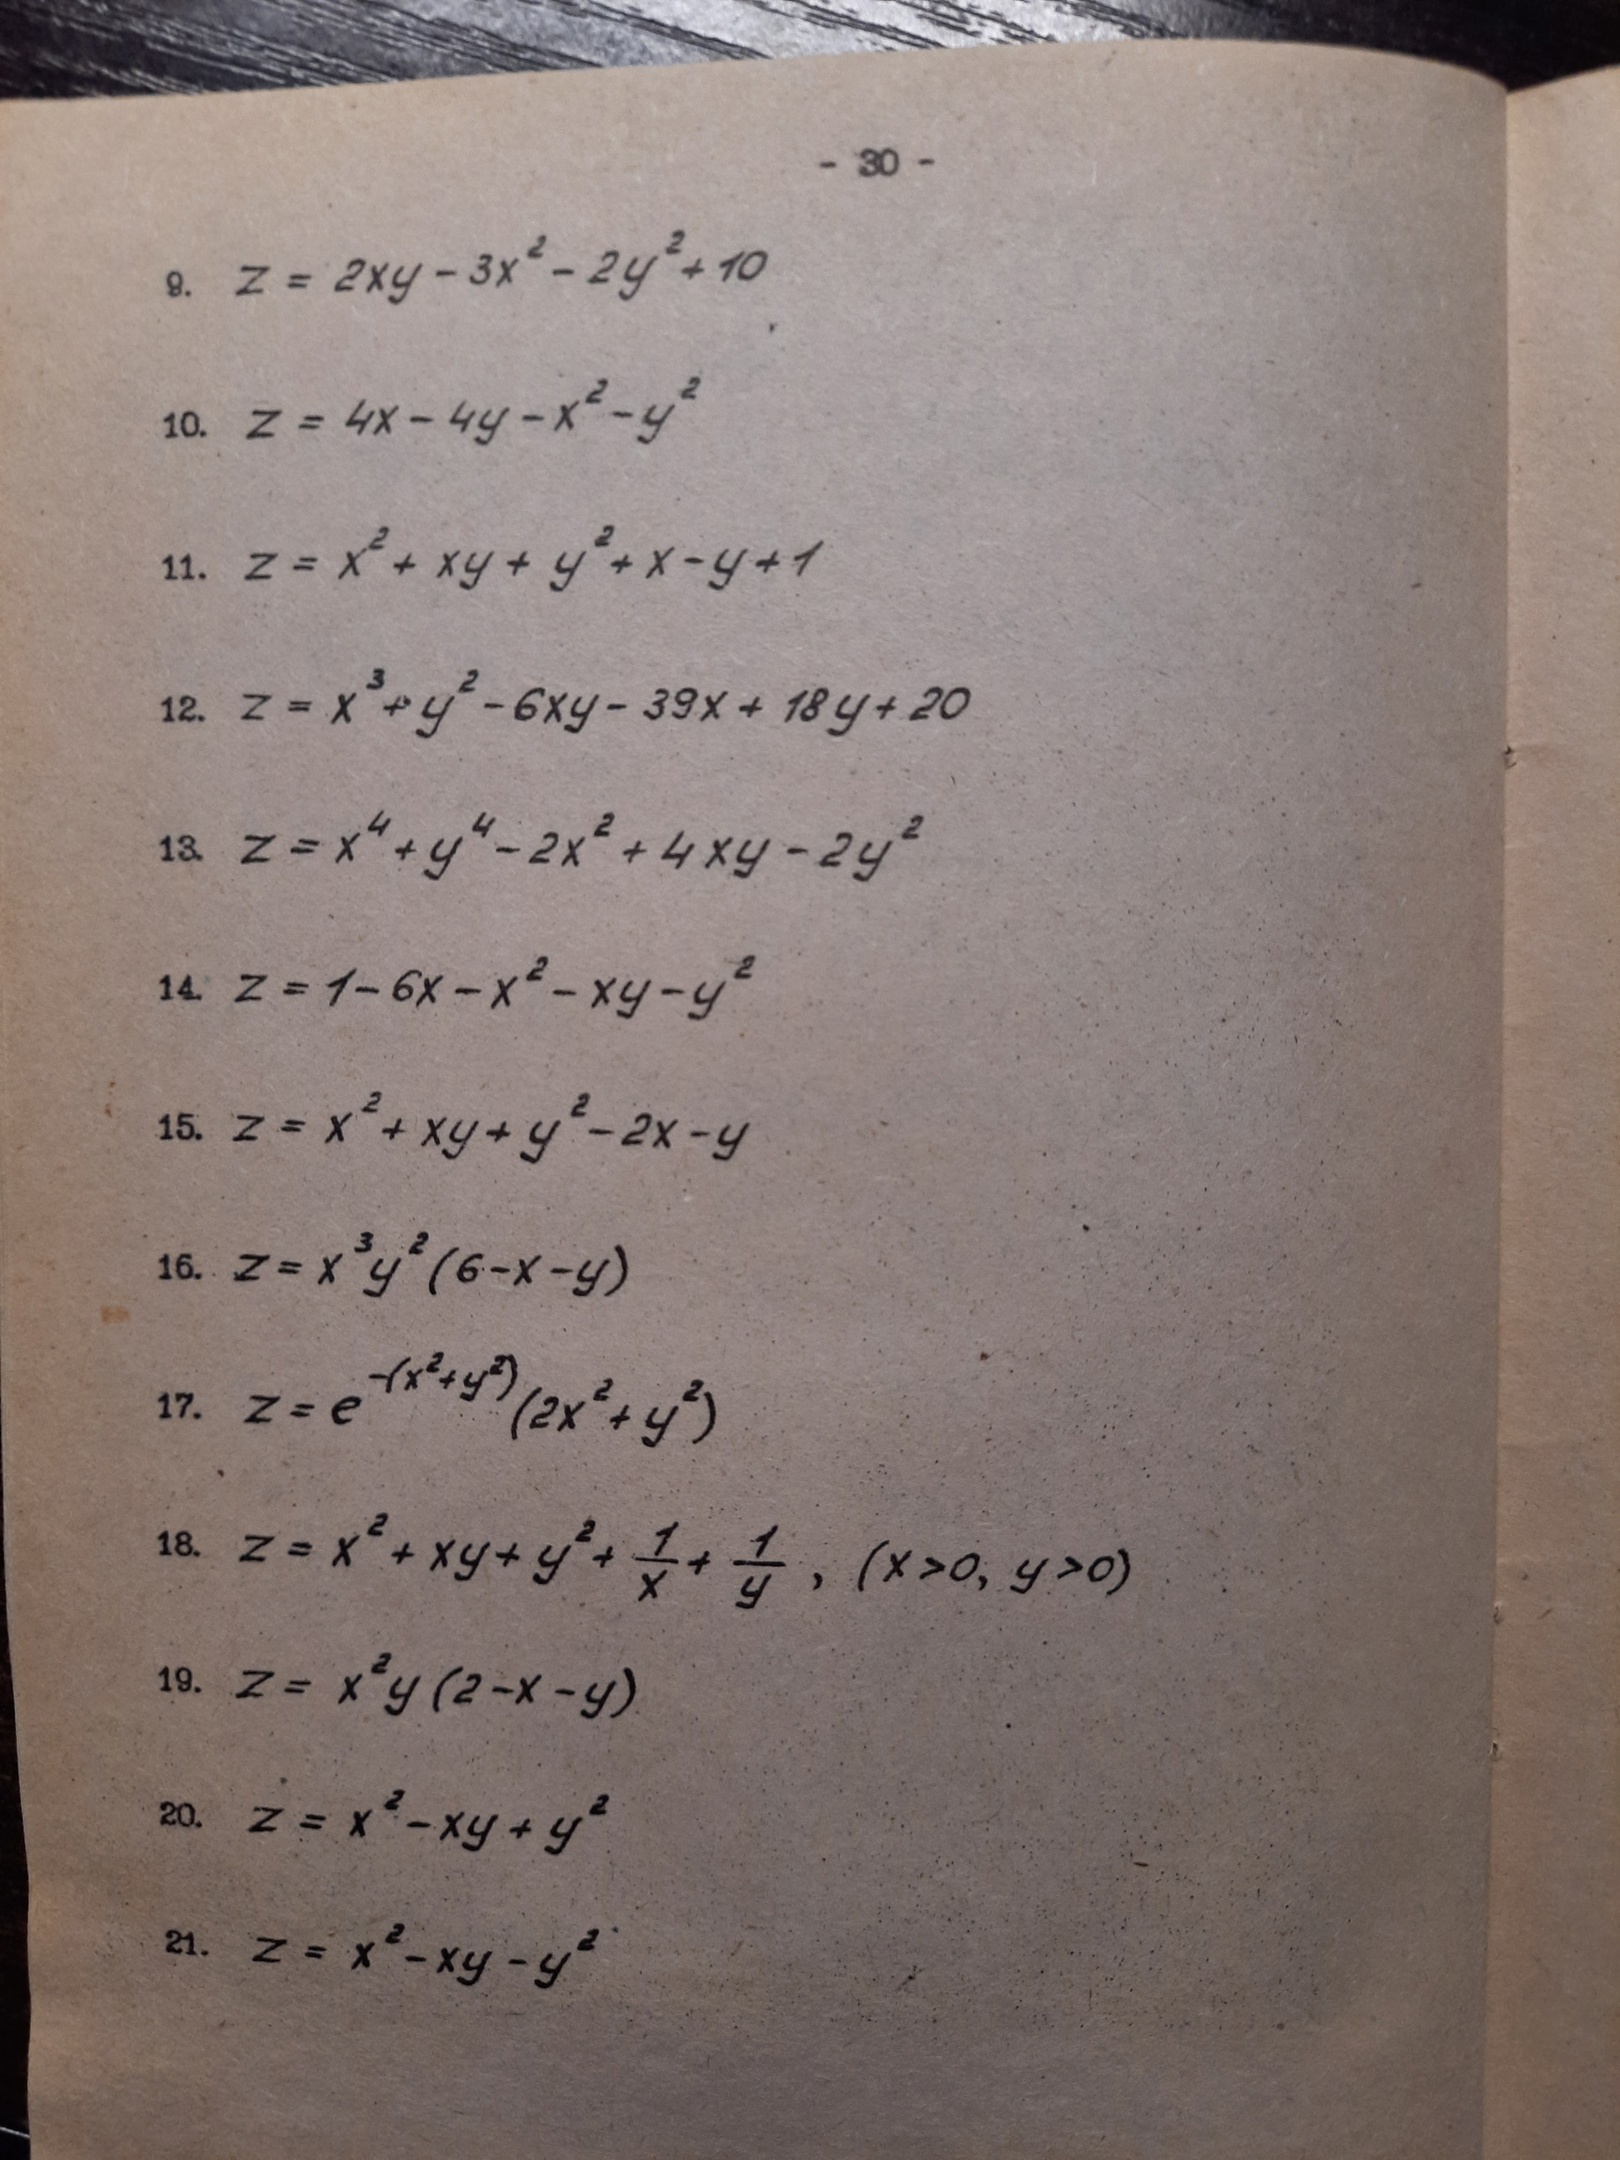 - 30 -
9. z = 2xy - 3x² - 2y² + 10
10. z = 4x - 4y - x² - y²
11. z = x² + xy + y² + x - y + 1
12. z = x³ + y² - 6xy - 39x + 18y + 20
13. z = x⁴ + y⁴ - 2x² + 4xy - 2y²
14. z = 1 - 6x - x² - xy - y²
15. z = x² + xy + y² - 2x - y
16. z = x³y²(6 - x - y)
17. z = e^{-(x²+y²)}(2x² + y²)
18. z = x² + xy + y² + 1/x + 1/y, (x > 0, y > 0)
19. z = x²y(2 - x - y)
20. z = x² - xy + y²
21. z = x² - xy - y²